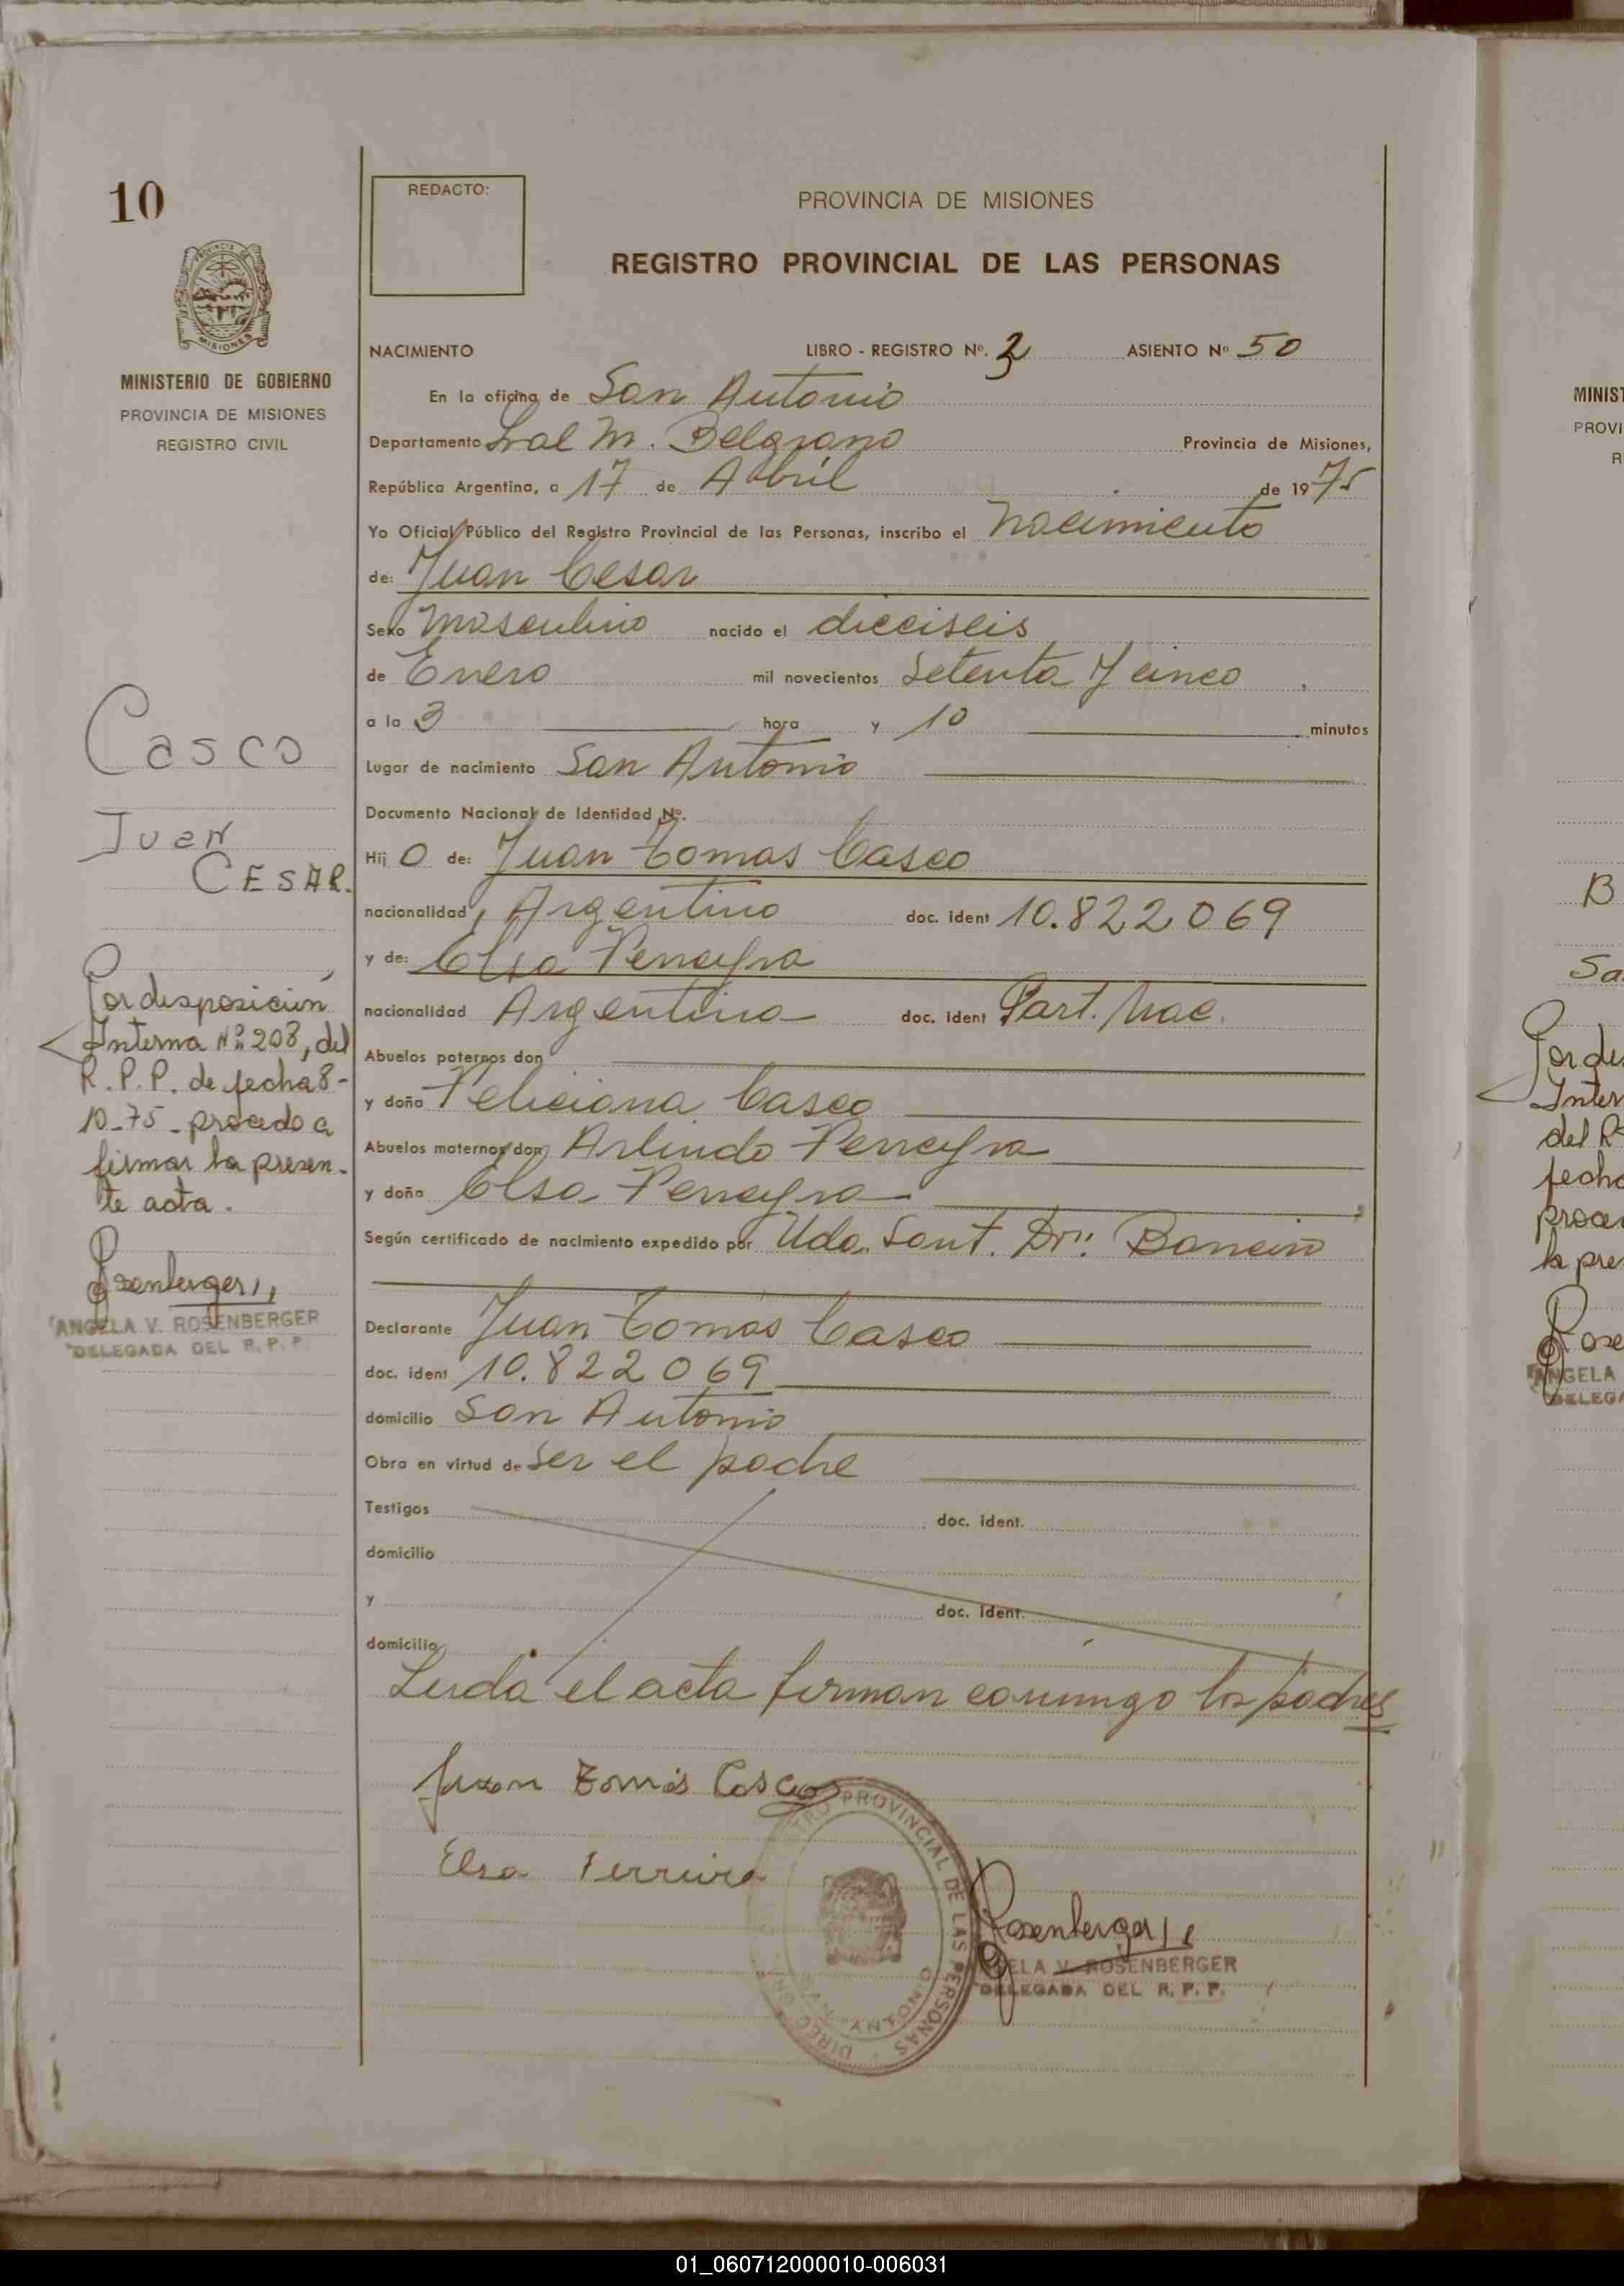 10
PROVINCIA DE MISIONES
MINISTERIO DE GOBIERNO
PROVINCIA DE MISIONES
REGISTRO CIVIL
Casco
Juan
CESAR.
Por disposición
Interna Nº 208, del
R.P.P. de fecha 8-
10-75 - procedo a
firmar la presen-
te acta.
Rosenberger
ANGELA V. ROSENBERGER
DELEGADA DEL R.P.P.
REDACTO:
PROVINCIA DE MISIONES
REGISTRO PROVINCIAL DE LAS PERSONAS
NACIMIENTO LIBRO - REGISTRO Nº. ASIENTO Nº 50
En la oficina de San Antonio
Departamento Gral M. Belgrano Provincia de Misiones,
República Argentina, a 17 de Abbril de 1975
Yo Oficial Público del Registro Provincial de las Personas, inscribo el nacimiento
de: Juan Cesar
Sexo Masculino nacido el dieciseis
de Enero mil novecientos Setenta y cinco
a la 3 hora y 10 minutos
Lugar de nacimiento San Antonio
Documento Nacional de Identidad Nº.
Hij o de: Juan Tomas Casco
nacionalidad Argentino doc. ident 10.822069
y de: Elsa Perreyra
nacionalidad Argentina doc. ident Part. Nac.
Abuelos paternos don
y doña Feliciana Casco
Abuelos maternos don Arlindo Perreyra
y doña Elsa Perreyra
Según certificado de nacimiento expedido por Uda. Sant. Dr:
Declarante Juan Tomás Casco
doc. ident 10.822069
domicilio San Antonio
Obra en virtud de Ser el padre
Testigos doc. ident.
domicilio
y doc. ident.
domicilio
Leida el acta firman conmigo los padres
Juan Tomás Casco
Elsa Ferreira
PROVINCIAL DE LAS PERSONAS
Rosenberger
ELA V. ROSENBERGER
DELEGADA DEL R.P.P.
MINIST
PROVI
R
B
Sa
Por dis
Inter
del R
fecha
proce
la pre
Rose
ANGELA
DELEGA
01_060712000010-006031